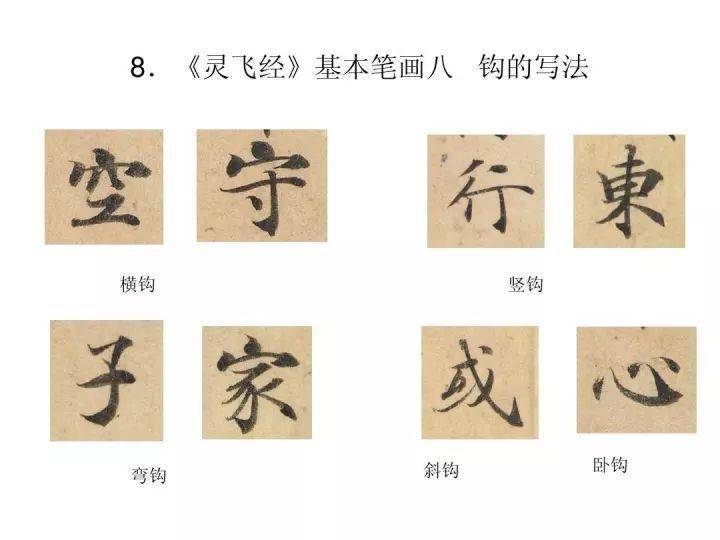 8. 《灵飞经》基本笔画八 钩的写法
空 守 行 東
横钩 竖钩
子 家 或 心
弯钩 斜钩 卧钩